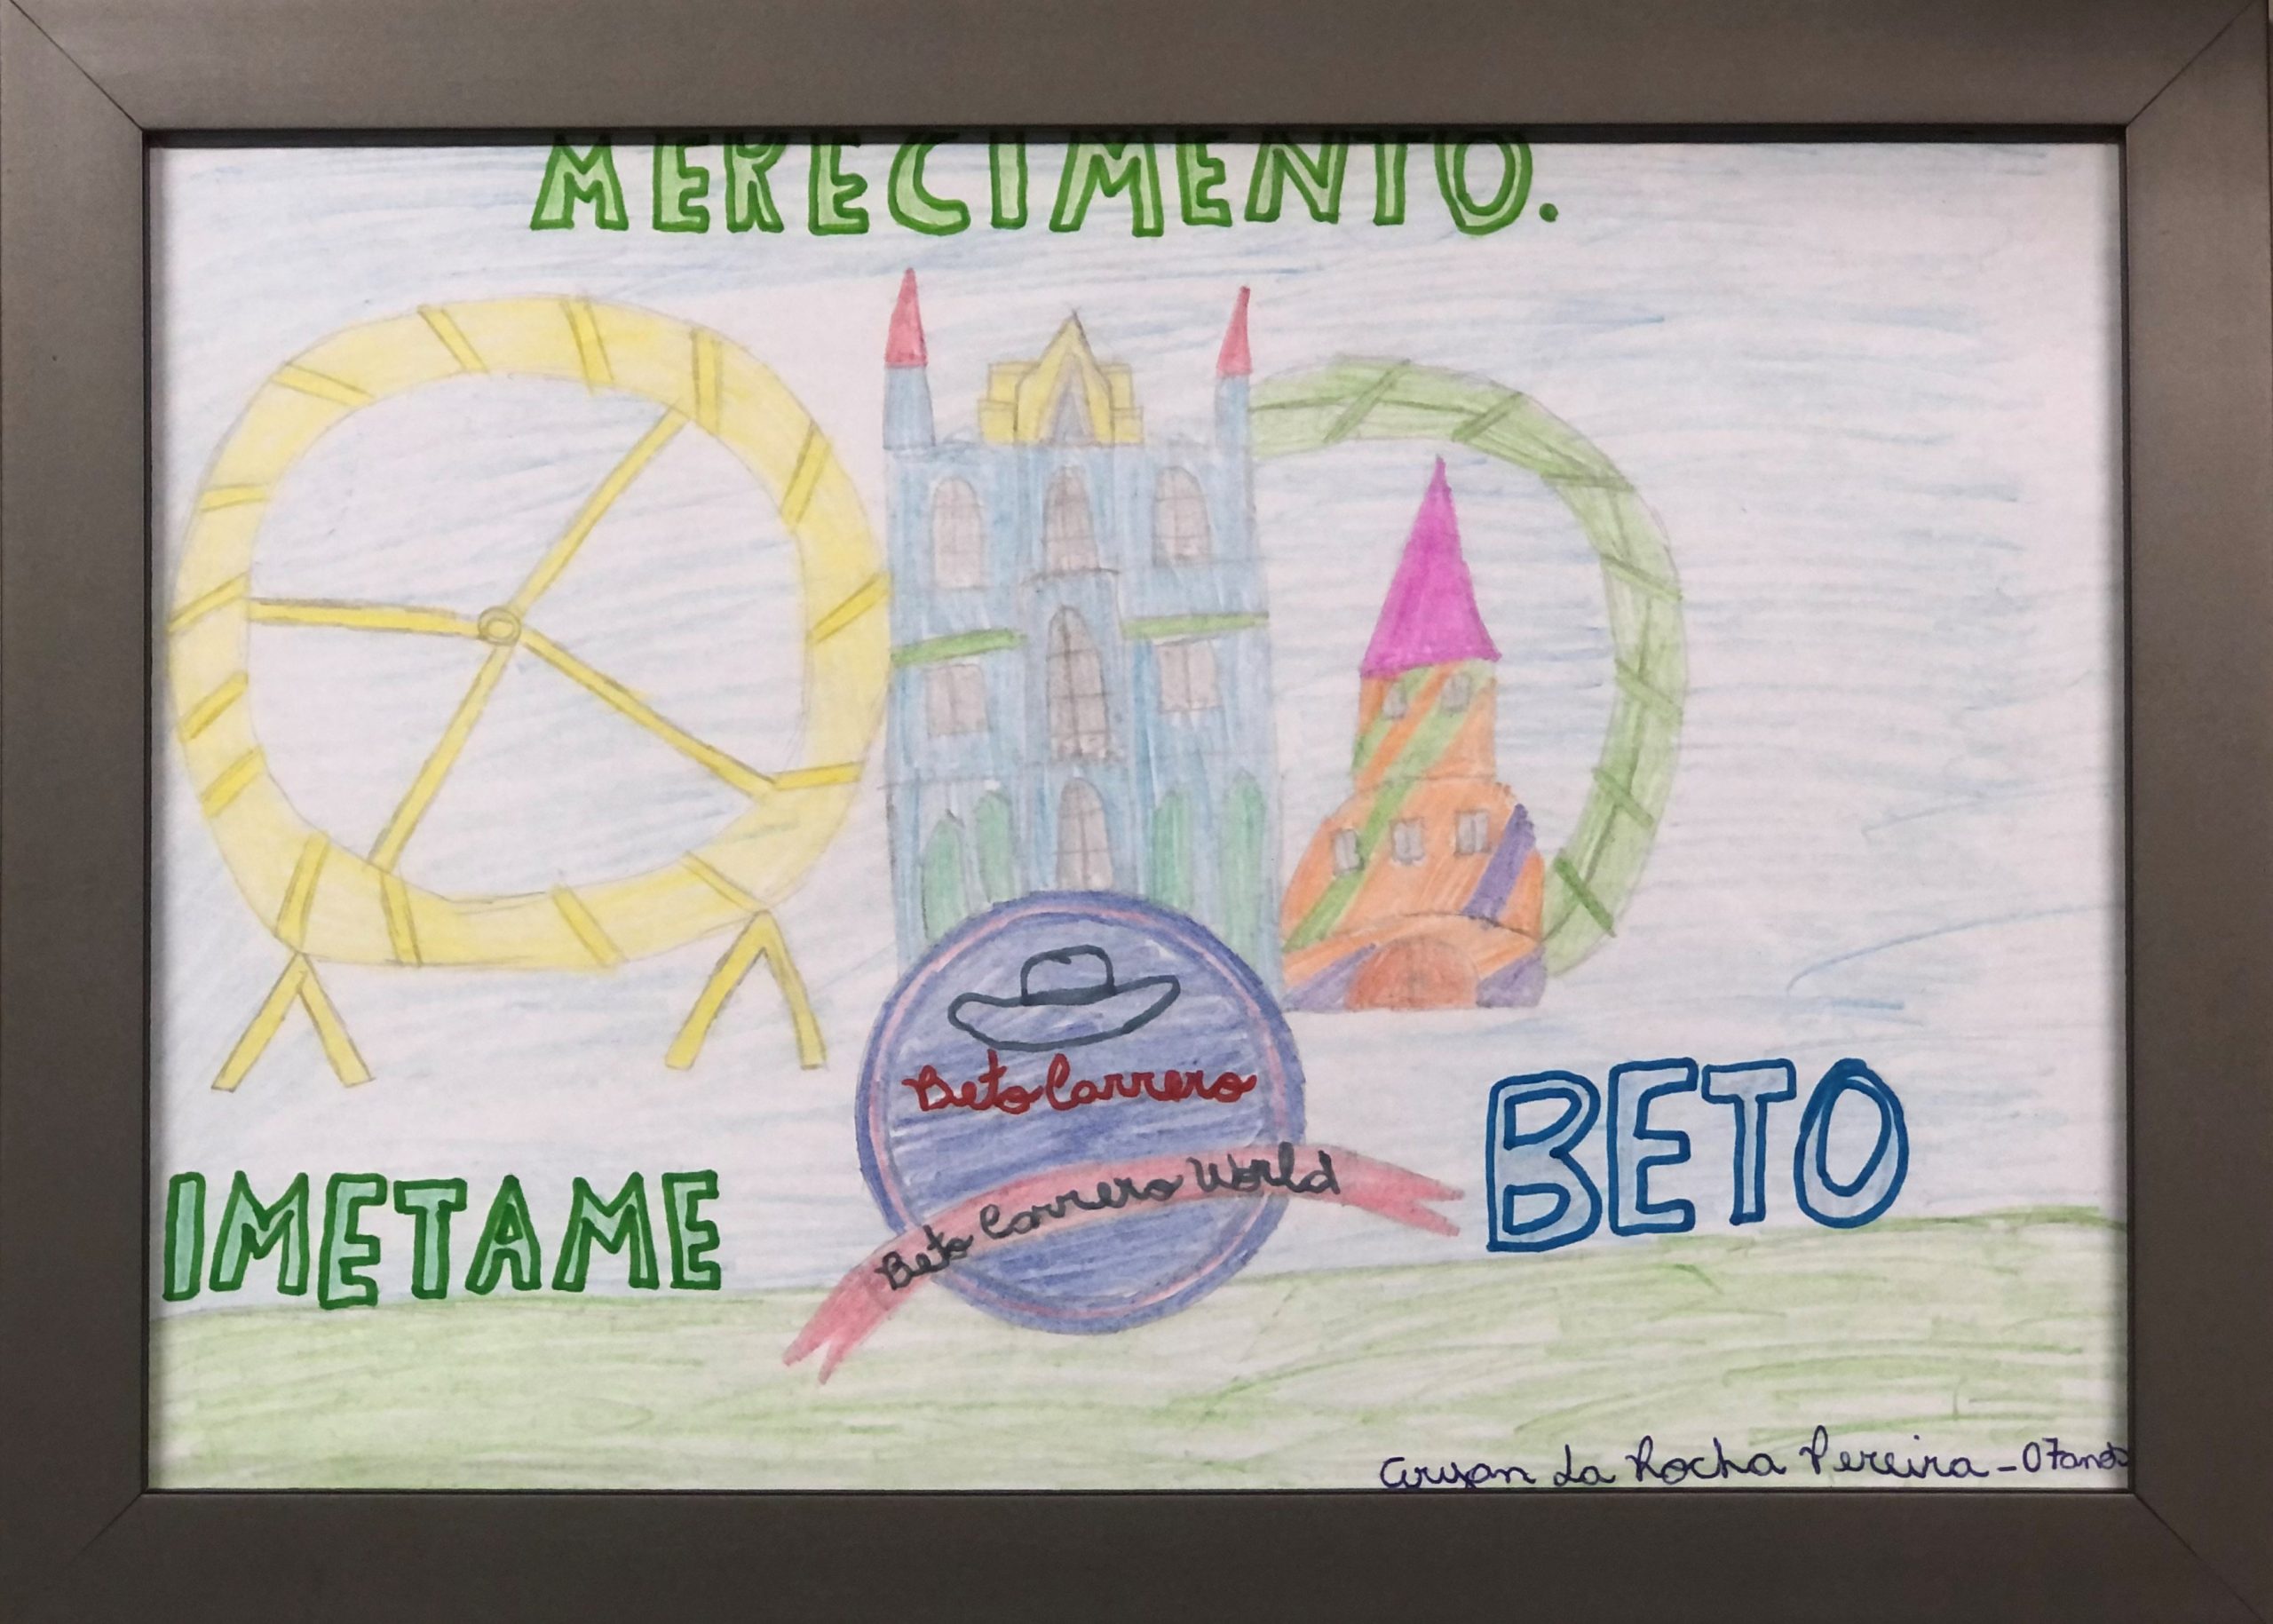 MERECIMENTO.
Beto Carrero
Beto Carrero World
IMETAME
BETO
Aryan La Rocha Pereira - 07 anos